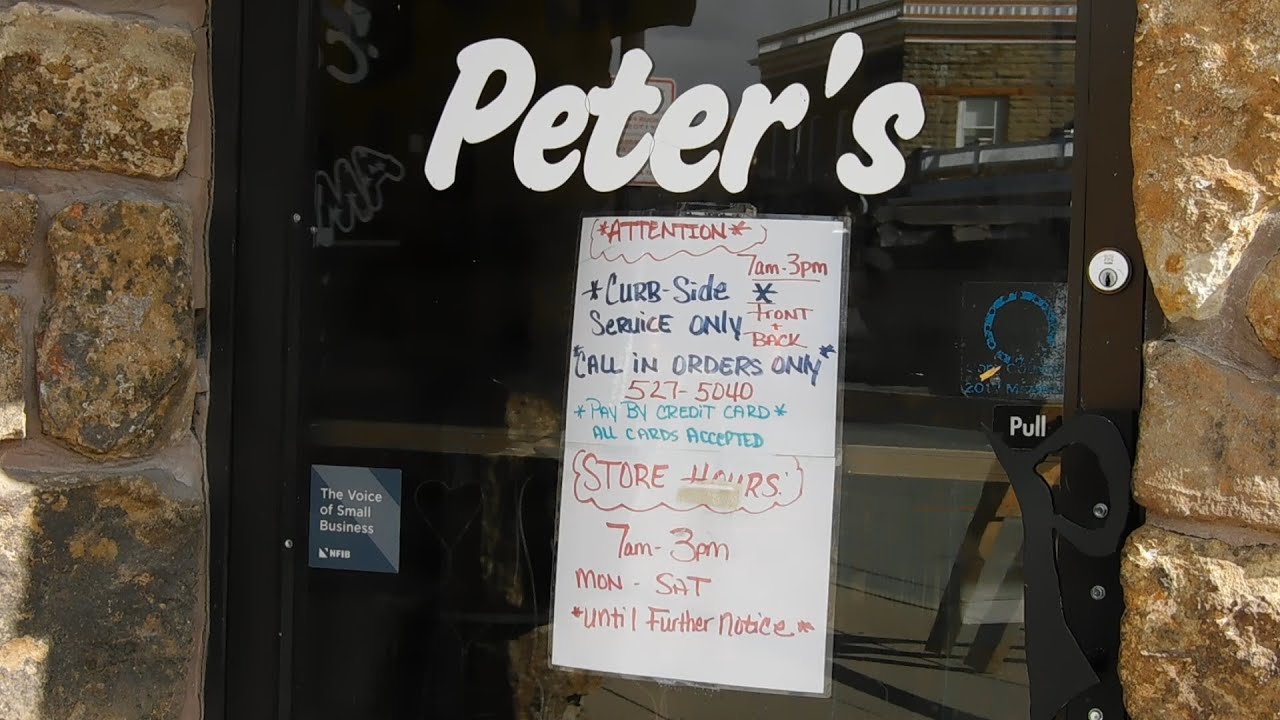 Peter's
*ATTENTION*
7am-3pm
*CURB-Side *
SERVICE ONLY
FRONT
+
BACK
*CALL IN ORDERS ONLY*
527-5040
*PAY BY CREDIT CARD*
ALL CARDS ACCEPTED
STORE HOURS:
7am-3pm
MON - SAT
*Until Further Notice*
The Voice
of Small
Business
NFIB
Pull